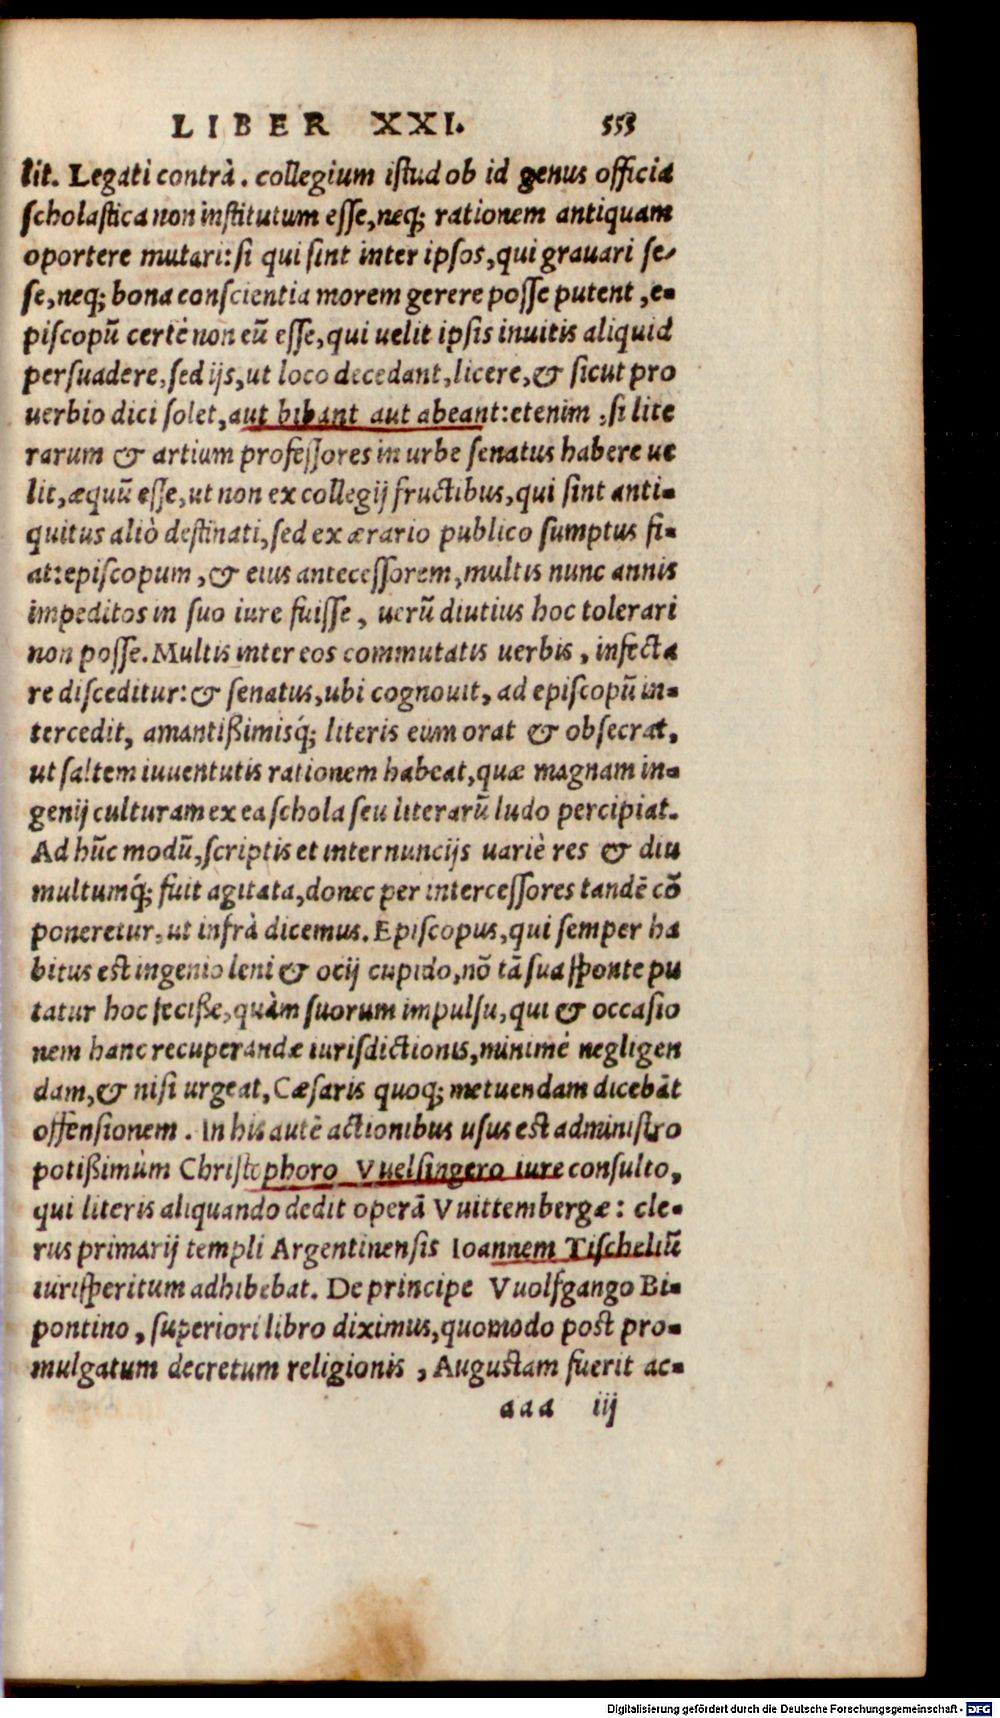 LIBER XXI. 553
lit. Legati contrà. collegium istud ob id genus officia
scholastica non institutum esse, neq; rationem antiquam
oportere mutari: si qui sint inter ipsos, qui grauari se-
se, neq; bona conscientia morem gerere posse putent, e-
piscopū certè non eū esse, qui uelit ipsis inuitis aliquid
persuadere, sed ijs, ut loco decedant, licere, & sicut pro
uerbio dici solet, aut bibant aut abeant: etenim, si lite
rarum & artium professores in urbe senatus habere ue
lit, æquū esse, ut non ex collegij fructibus, qui sint anti-
quitus aliò destinati, sed ex ærario publico sumptus fi-
at: episcopum, & eius antecessorem, multis nunc annis
impeditos in suo iure fuisse, uerū diutius hoc tolerari
non posse. Multis inter eos commutatis uerbis, infecta
re disceditur: & senatus, ubi cognouit, ad episcopū in-
tercedit, amantißimisq́; literis eum orat & obsecrat,
ut saltem iuuentutis rationem habeat, quæ magnam in-
genij culturam ex ea schola seu literarū ludo percipiat.
Ad hūc modū, scriptis et internuncijs uariè res & diu
multumq́; fuit agitata, donec per intercessores tandē cō
poneretur, ut infrà dicemus. Episcopus, qui semper ha
bitus est ingenio leni & ocij cupido, nō tā sua sponte pu
tatur hoc feciße, quàm suorum impulsu, qui & occasio
nem hanc recuperandæ iurisdictionis, minimè negligen
dam, & nisi urgeat, Cæsaris quoq; metuendam dicebāt
offensionem. In his autē actionibus usus est administro
potißimùm Christophoro Vuelsingero iure consulto,
qui literis aliquando dedit operā Vuittembergæ: cle-
rus primarij templi Argentinensis Ioannem Tischeliū
iurisperitum adhibebat. De principe Vuolfgango Bi-
pontino, superiori libro diximus, quomodo post pro-
mulgatum decretum religionis, Augustam fuerit ac-
aaa iij
Digitalisierung gefördert durch die Deutsche Forschungsgemeinschaft - DFG